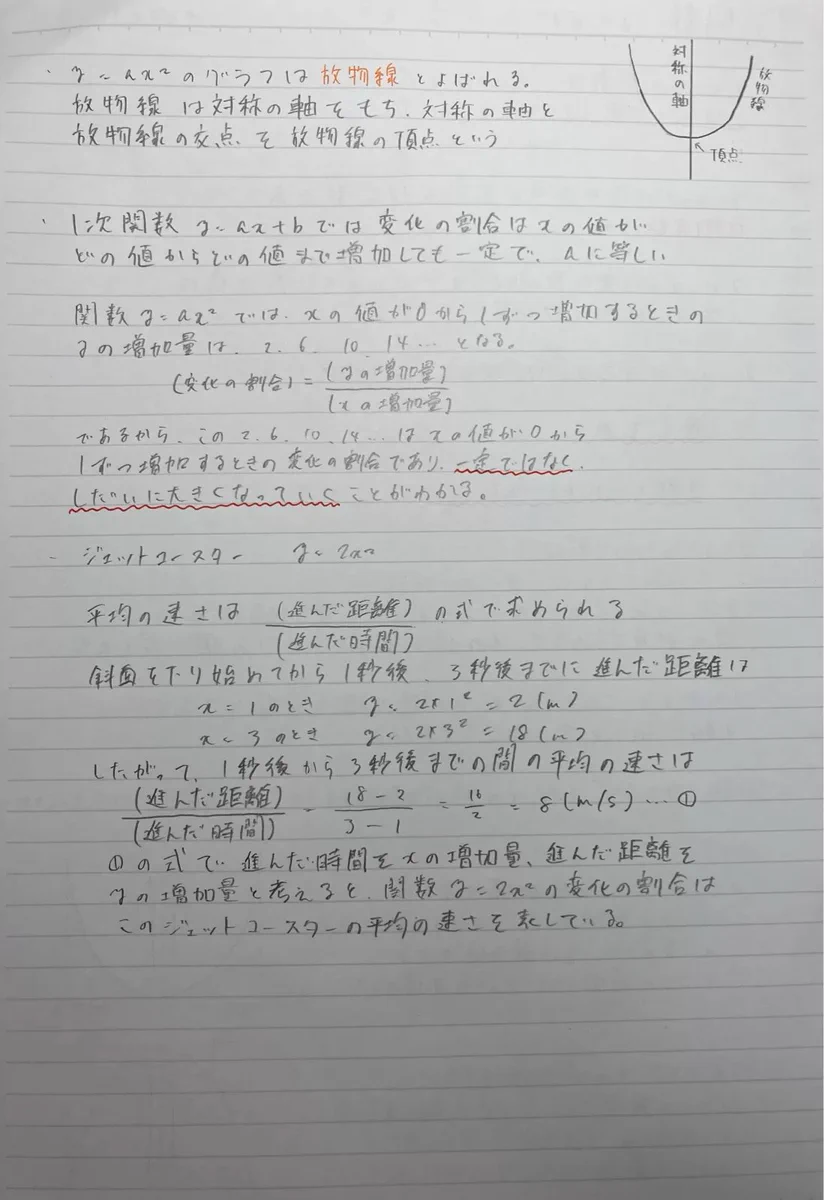 ・y=ax²のグラフは放物線とよばれる。
放物線は対称の軸をもち、対称の軸と
放物線の交点を放物線の頂点という
対称の軸
放物線
頂点
・1次関数 y=ax+b では変化の割合はxの値が
どの値からどの値まで増加しても一定で、aに等しい
関数y=ax²では、xの値が0から1ずつ増加するときの
yの増加量は、2、6、10、14…となる。
(変化の割合)=(yの増加量)/(xの増加量)
であるから、この2、6、10、14…はxの値が0から
1ずつ増加するときの変化の割合であり、一定ではなく、
しだいに大きくなっていくことがわかる。
・ジェットコースター y=2x²
平均の速さは (進んだ距離)/(進んだ時間) の式で求められる
斜面を下り始めてから1秒後、3秒後までに進んだ距離は
x=1のとき y=2×1²=2(m)
x=3のとき y=2×3²=18(m)
したがって、1秒後から3秒後までの間の平均の速さは
(進んだ距離)/(進んだ時間)=18-2/3-1=16/2=8(m/s)…①
①の式で、進んだ時間をxの増加量、進んだ距離を
yの増加量と考えると、関数y=2x²の変化の割合は
このジェットコースターの平均の速さを表している。